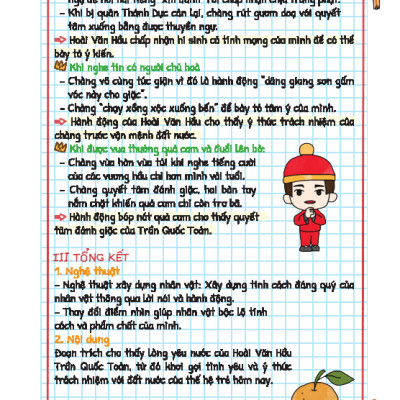 – Khi bị quân Thánh Dực cản lại, chàng rút gươm doạ với quyết
tâm xuống bằng được thuyền ngự.
Hoài Văn Hầu chấp nhận hi sinh cả tính mạng của mình để có thể
bày tỏ ý kiến.
Khi nghe tin có người chủ hoà
– Chàng vô cùng tức giận vì đó là hành động “dâng giang sơn gấm
vóc này cho giặc”.
– Chàng “chạy xồng xộc xuống bến” để bày tỏ tâm ý của mình.
Hành động của Hoài Văn Hầu cho thấy ý thức trách nhiệm của
chàng trước vận mệnh đất nước.
Khi được vua thưởng quả cam và đuổi lên bờ:
– Chàng vừa hờn vừa tủi khi nghe tiếng cười
của các vương hầu chỉ hơn mình vài tuổi.
– Chàng quyết tâm đánh giặc, hai bàn tay
nắm chặt khiến quả cam chỉ còn trơ bã.
Hành động bóp nát quả cam cho thấy quyết
tâm đánh giặc của Trần Quốc Toản.
III TỔNG KẾT
1. Nghệ thuật
– Nghệ thuật xây dựng nhân vật: Xây dựng tính cách đáng quý của
nhân vật thông qua lời nói và hành động.
– Thay đổi điểm nhìn giúp nhân vật bộc lộ tính
cách và phẩm chất của mình.
2. Nội dung
Đoạn trích cho thấy lòng yêu nước của Hoài Văn Hầu
Trần Quốc Toản, từ đó khơi gợi tình yêu và ý thức
trách nhiệm với đất nước của thế hệ trẻ hôm nay.